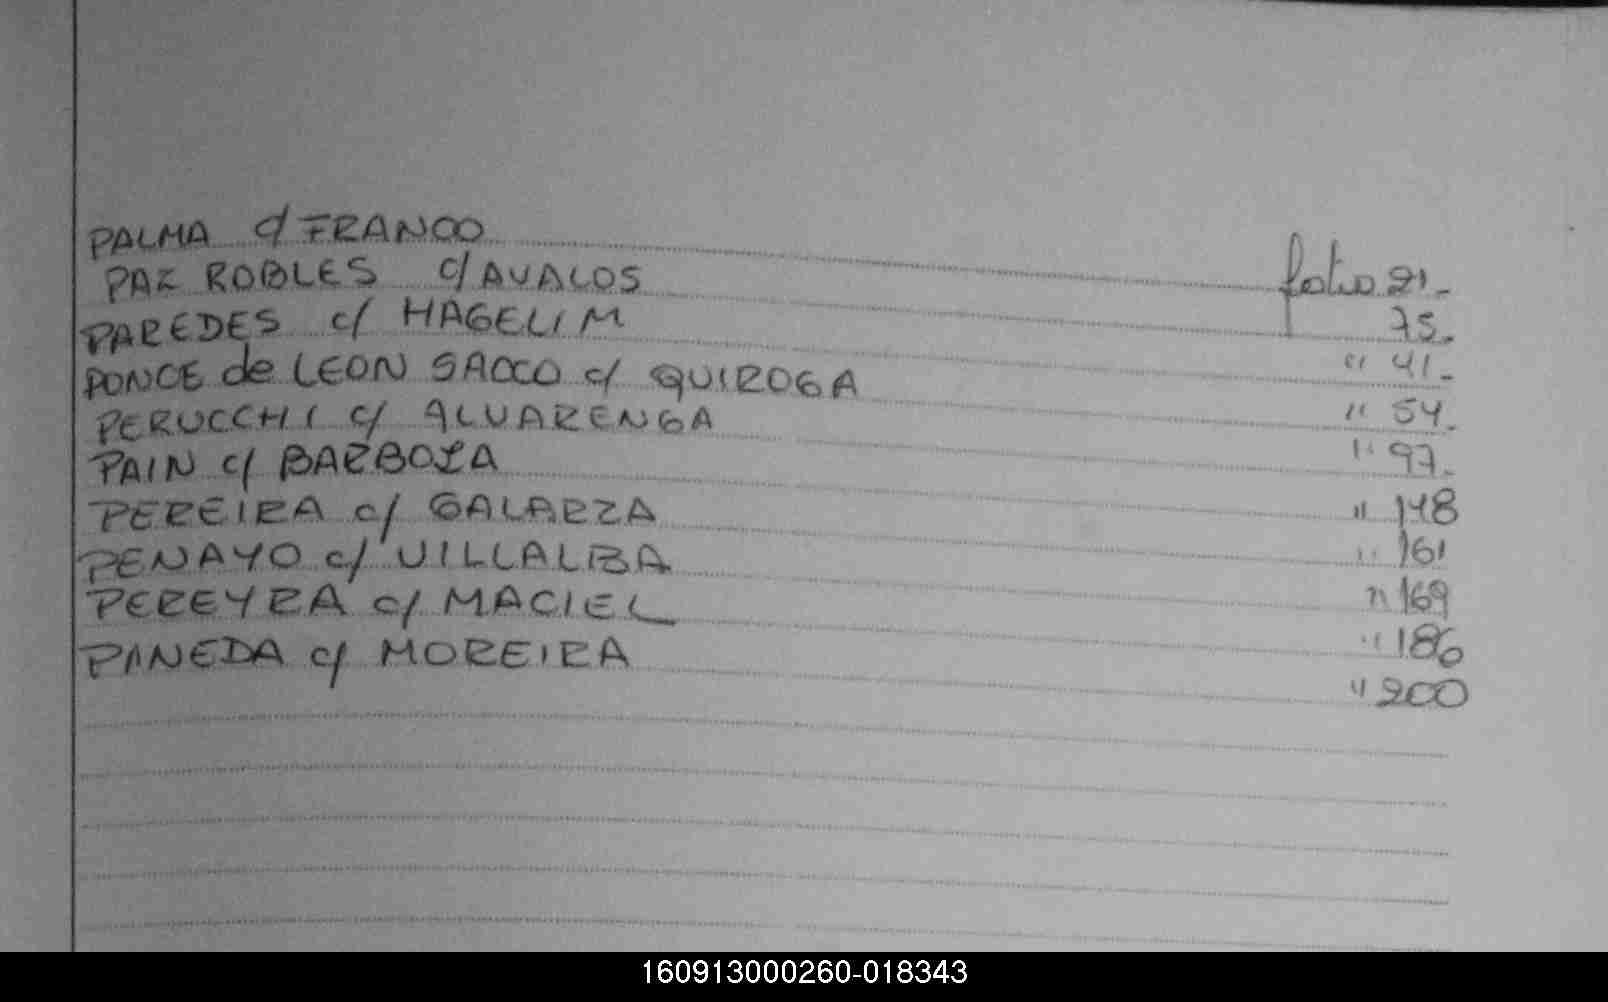 PALMA c/ FRANCO folio 21.-
PAZ ROBLES c/ AVALOS 75.-
PAREDES c/ HAGELIM " 41.-
PONCE de LEON SACCO c/ QUIROGA " 54.
PERUCCHI c/ ALVARENGA " 97.-
PAIN c/ BARBOZA " 148
PEREIRA c/ GALARZA " 161
PENAYO c/ VILLALBA " 169
PEREYRA c/ MACIEL " 186
PANEDA c/ MOREIRA " 200
160913000260-018343